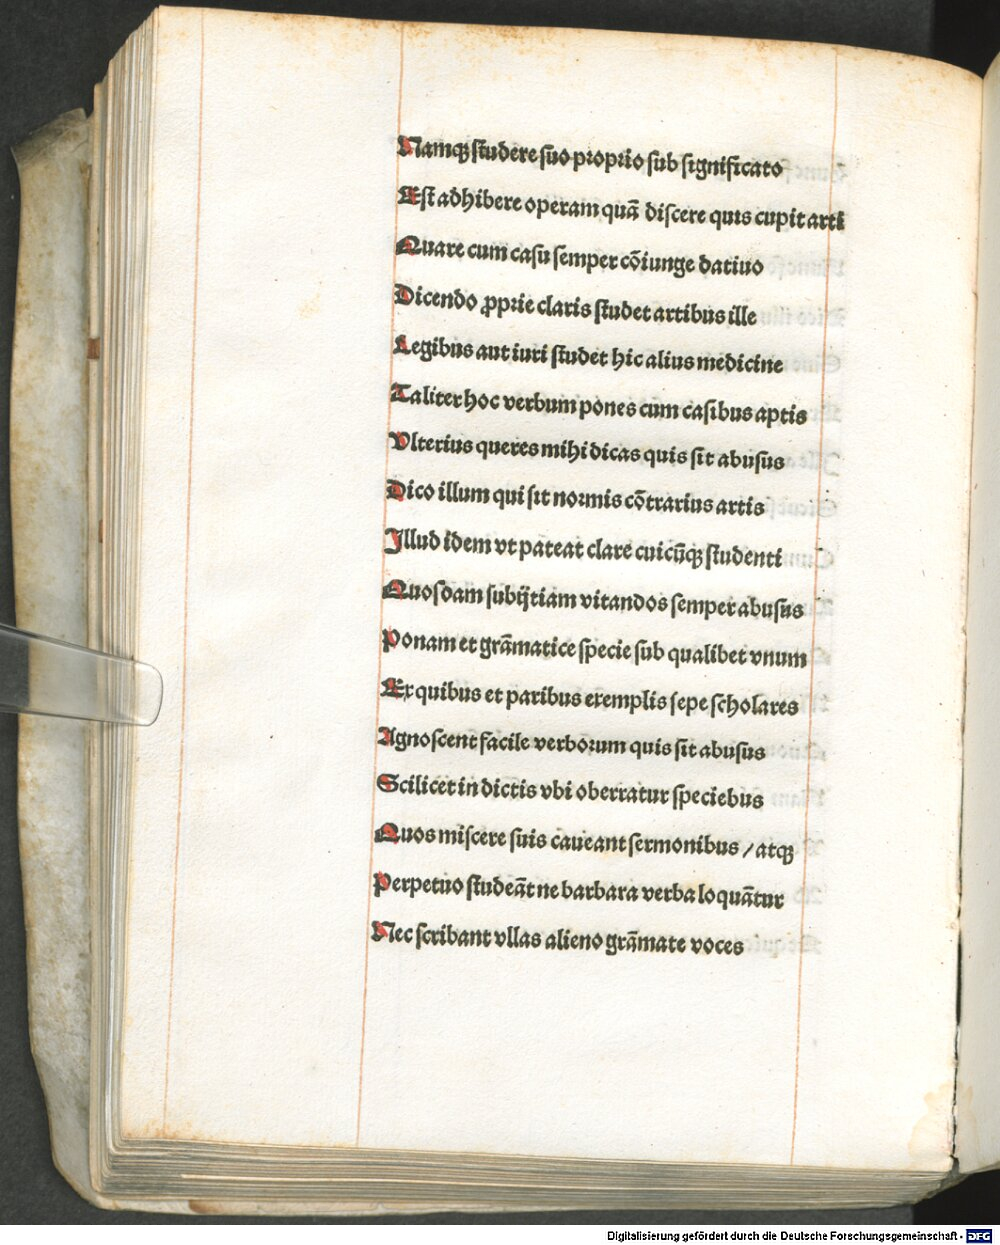 Namqꝫ ſtudere ſuo proprio ſub ſignificato
Eſt adhibere operam quā diſcere quis cupit arti
Quare cum caſu ſemper cōiunge datiuo
Dicendo ꝓprie claris ſtudet artibus ille
Legibus aut iuri ſtudet hic alius medicine
Taliter hoc verbum pones cum caſibus aptis
Vlterius queres mihi dicas quis ſit abuſus
Dico illum qui ſit normis cōtrarius artis
Illud idem vt pateat clare cuicūqꝫ ſtudenti
Quosdam ſubijtiam vitandos ſemper abuſus
Ponam et grāmatice ſpecie ſub qualibet vnum
Ex quibus et paribus exemplis ſepe ſcholares
Agnoſcent facile verborum quis ſit abuſus
Scilicet in dictis vbi oberratur ſpeciebus
Quos miſcere ſuis caueant ſermonibus / atqꝫ
Perpetuo ſtudeāt ne barbara verba loquātur
Nec ſcribant vllas alieno grāmate voces
Digitalisierung gefördert durch die Deutsche Forschungsgemeinschaft - DFG